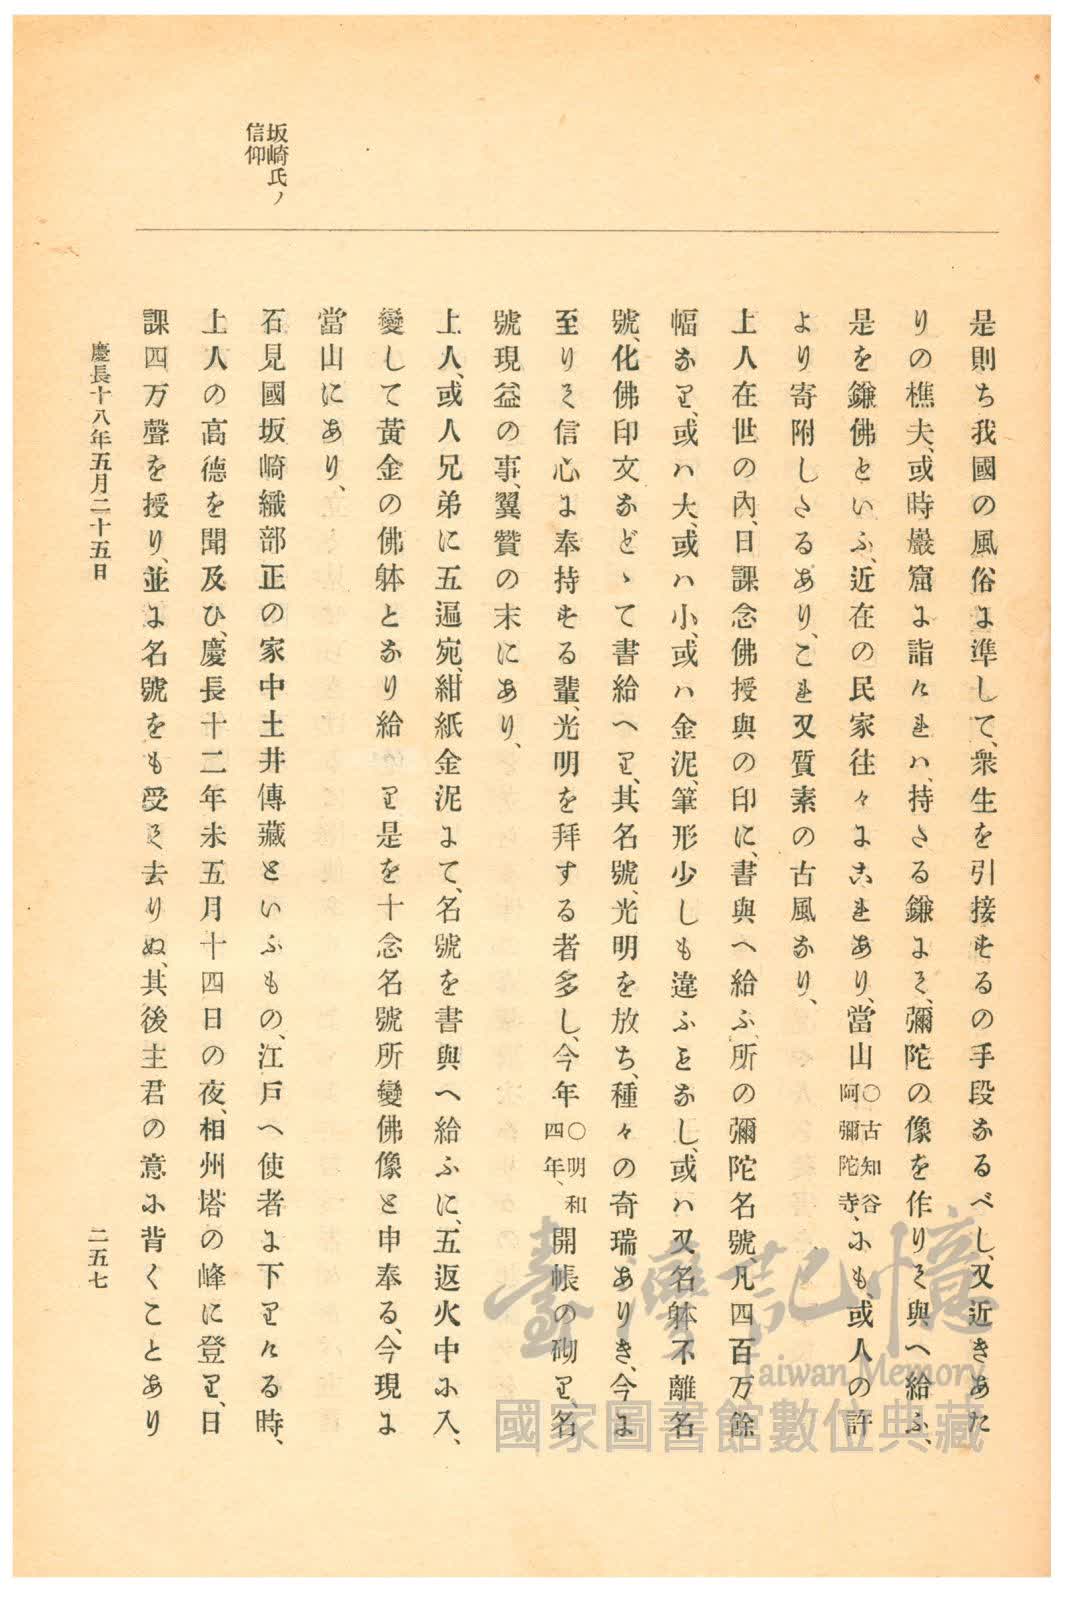 坂崎氏ノ
信仰
是則ち我國の風俗に準して、衆生を引接するの手段なるべし、又近きあた
りの樵夫、或時巖窟に詣けれハ、持たる鎌にて、彌陀の像を作りて與へ給ふ、
是を鎌佛といふ、近在の民家往々にこれあり、當山〇古知谷阿彌陀寺、にも、或人の許
より寄附したるあり、これ又質素の古風なり、
上人在世の內、日課念佛授與の印に、書與へ給ふ、所の彌陀名號、凡四百万餘
幅なり、或ハ大、或ハ小、或ハ金泥、筆形少しも違ふことなし、或ハ又名躰不離名
號、化佛印文などゝて書給へり、其名號、光明を放ち、種々の奇瑞ありき、今に
至りて信心に奉持する輩、光明を拜する者多し、今年〇明和四年、開帳の砌り、名
號現益の事、翼贊の末にあり、
上人、或人兄弟に五遍宛、紺紙金泥にて、名號を書與へ給ふに、五返火中に入、
變して黃金の佛躰となり給り是を十念名號所變佛像と申奉る、今現に
當山にあり、
石見國坂崎織部正の家中土井傳藏といふもの、江戸へ使者に下りける時、
上人の高德を聞及ひ、慶長十二年未五月十四日の夜、相州塔の峰に登り、日
課四万聲を授り、並に名號をも受て去りぬ、其後主君の意に背くことあり
慶長十八年五月二十五日
二五七
臺灣記憶
Taiwan Memory
國家圖書館數位典藏